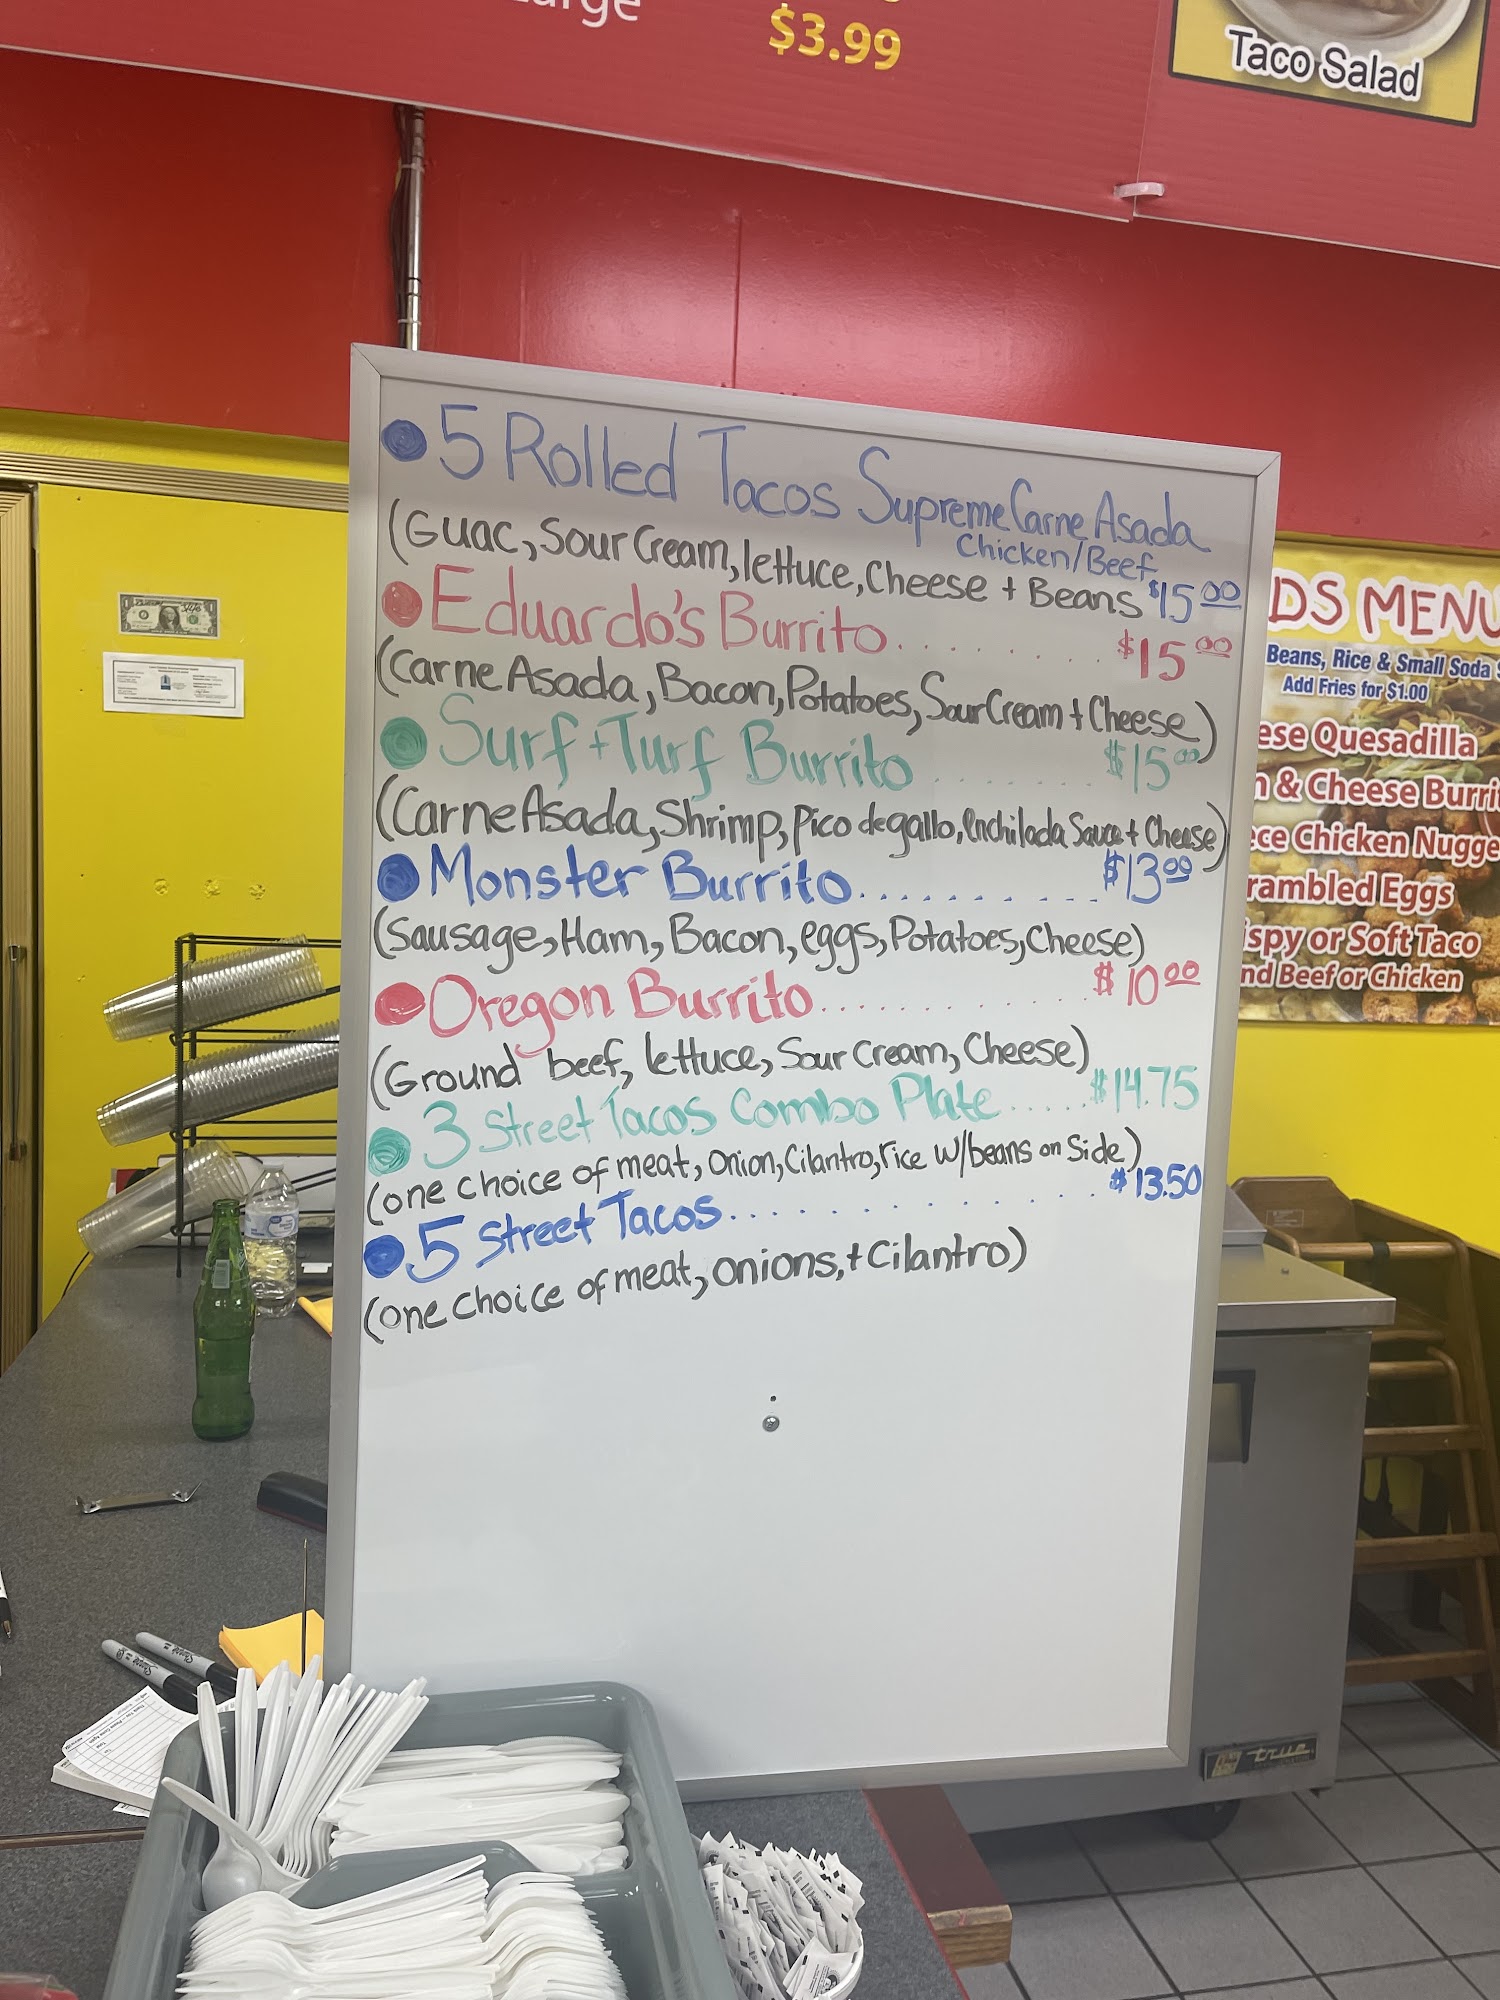 $3.99
Taco Salad
5 Rolled Tacos Supreme Carne Asada
Chicken/Beef
(Guac, Sour Cream, lettuce, Cheese + Beans $15.00
Eduardo's Burrito.......... $15.00
(Carne Asada, Bacon, Potatoes, Sour Cream + Cheese)
Surf + Turf Burrito........ $15.00
(Carne Asada, Shrimp, Pico de gallo, Enchilada Sauce + Cheese)
Monster Burrito........... $13.00
(Sausage, Ham, Bacon, eggs, Potatoes, Cheese)
Oregon Burrito........... $10.00
(Ground beef, lettuce, Sour Cream, Cheese)
3 Street Tacos Combo Plate..... $14.75
(one choice of meat, Onion, Cilantro, rice w/beans on Side)
5 Street Tacos............ $13.50
(one choice of meat, onions, + Cilantro)
DS MENU
Beans, Rice & Small Soda
Add Fries for $1.00
ese Quesadilla
& Cheese Burri
ce Chicken Nugge
rambled Eggs
ispy or Soft Taco
nd Beef or Chicken
true